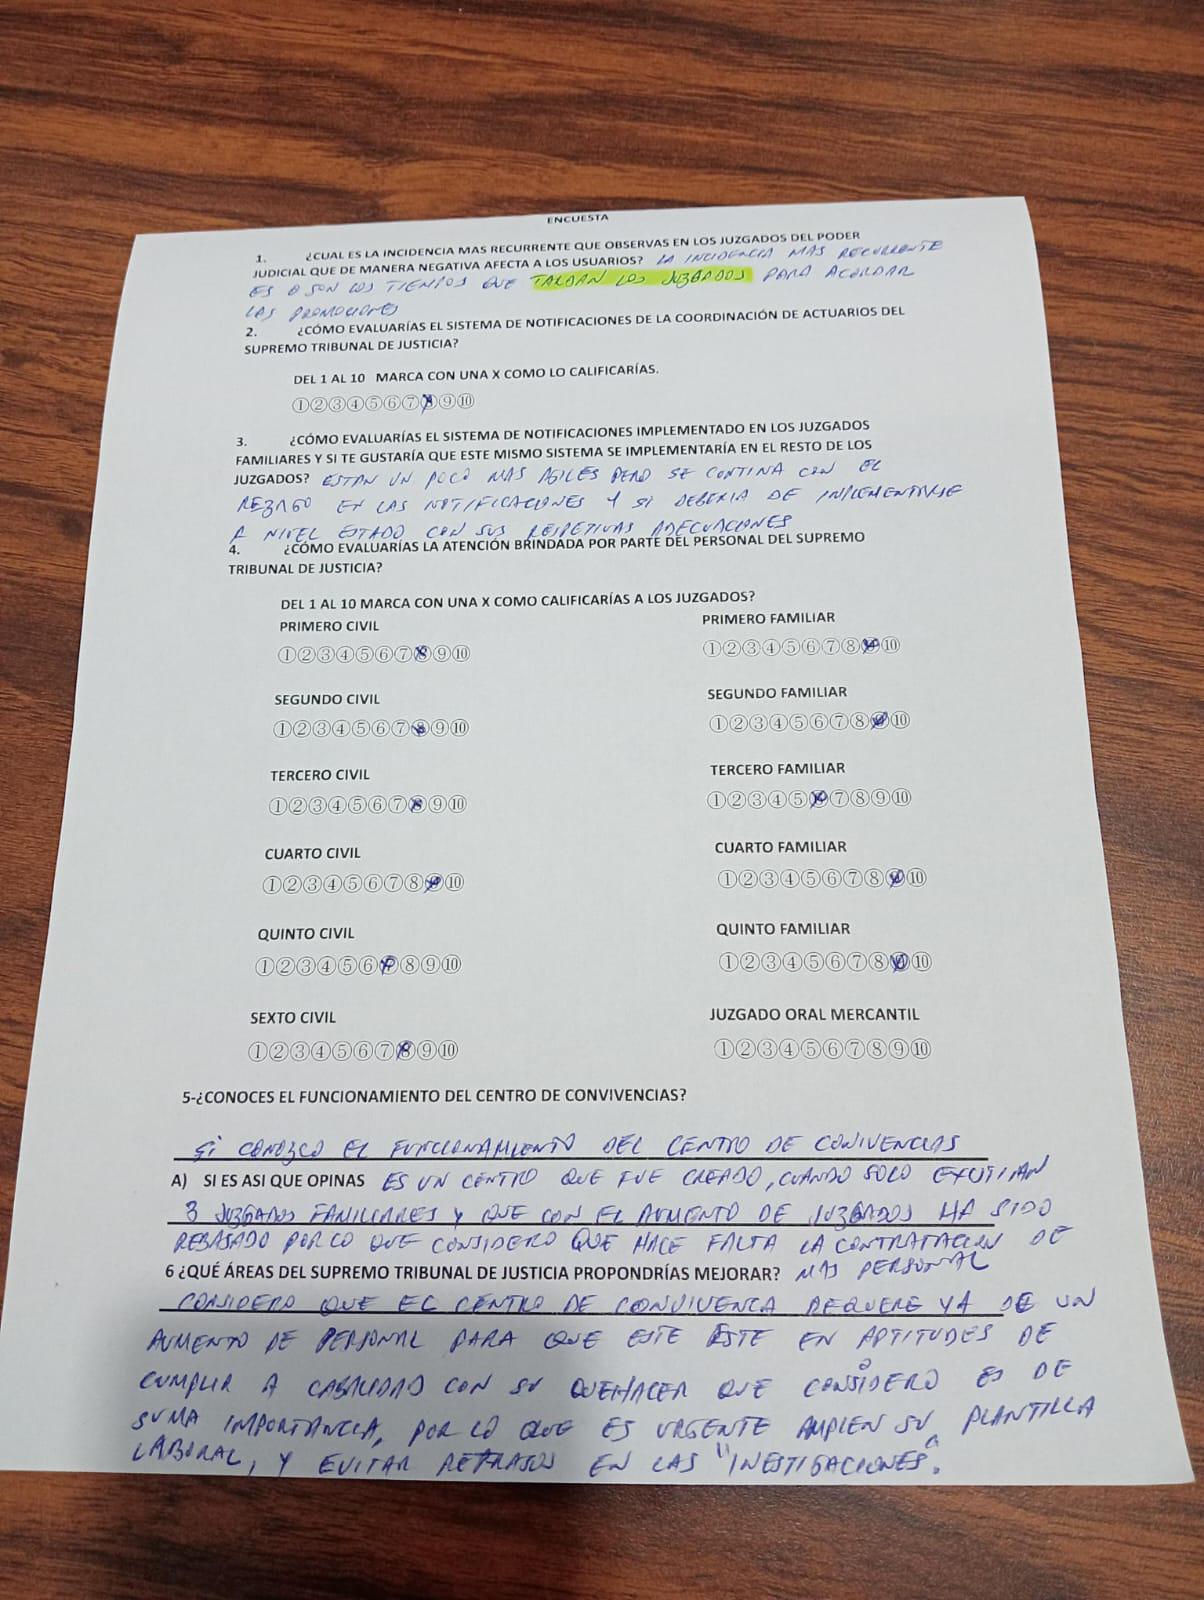 ENCUESTA
1. ¿CUAL ES LA INCIDENCIA MAS RECURRENTE QUE OBSERVAS EN LOS JUZGADOS DEL PODER
JUDICIAL QUE DE MANERA NEGATIVA AFECTA A LOS USUARIOS? LA INCIDENCIA MAS RECURRENTE
ES O SON LOS TIEMPOS QUE TARDAN LOS JUZGADOS PARA ACORDAR
LAS PROMOCIONES
2. ¿CÓMO EVALUARÍAS EL SISTEMA DE NOTIFICACIONES DE LA COORDINACIÓN DE ACTUARIOS DEL
SUPREMO TRIBUNAL DE JUSTICIA?
DEL 1 AL 10 MARCA CON UNA X COMO LO CALIFICARÍAS.
①②③④⑤⑥⑦⑧⑨⑩
3. ¿CÓMO EVALUARÍAS EL SISTEMA DE NOTIFICACIONES IMPLEMENTADO EN LOS JUZGADOS
FAMILIARES Y SI TE GUSTARÍA QUE ESTE MISMO SISTEMA SE IMPLEMENTARÍA EN EL RESTO DE LOS
JUZGADOS? ESTAN UN POCO MAS AGILES PERO SE CONTINA CON EL
REZAGO EN LAS NOTIFICACIONES Y SI DEBERIA DE INPLEMENTARSE
A NIVEL ESTADO CON SUS RESPETIVAS ADECUACIONES
4. ¿CÓMO EVALUARÍAS LA ATENCIÓN BRINDADA POR PARTE DEL PERSONAL DEL SUPREMO
TRIBUNAL DE JUSTICIA?
DEL 1 AL 10 MARCA CON UNA X COMO CALIFICARÍAS A LOS JUZGADOS?
PRIMERO CIVIL PRIMERO FAMILIAR
①②③④⑤⑥⑦⑧⑨⑩ ①②③④⑤⑥⑦⑧⑨⑩
SEGUNDO CIVIL SEGUNDO FAMILIAR
①②③④⑤⑥⑦⑧⑨⑩ ①②③④⑤⑥⑦⑧⑨⑩
TERCERO CIVIL TERCERO FAMILIAR
①②③④⑤⑥⑦⑧⑨⑩ ①②③④⑤⑥⑦⑧⑨⑩
CUARTO CIVIL CUARTO FAMILIAR
①②③④⑤⑥⑦⑧⑨⑩ ①②③④⑤⑥⑦⑧⑨⑩
QUINTO CIVIL QUINTO FAMILIAR
①②③④⑤⑥⑦⑧⑨⑩ ①②③④⑤⑥⑦⑧⑨⑩
SEXTO CIVIL JUZGADO ORAL MERCANTIL
①②③④⑤⑥⑦⑧⑨⑩ ①②③④⑤⑥⑦⑧⑨⑩
5-¿CONOCES EL FUNCIONAMIENTO DEL CENTRO DE CONVIVENCIAS?
SI CONOZCO EL FUNCIONAMIENTO DEL CENTRO DE CONIVENCIAS
A) SI ES ASI QUE OPINAS ES UN CENTRO QUE FUE CREADO, CUANDO SOLO EXITIAN
3 JUZGADOS FAMILIARES Y QUE CON EL AUMENTO DE JUZGADOS HA SIDO
REBASADO POR LO QUE CONSIDERO QUE HACE FALTA LA CONTRATACION DE
6 ¿QUÉ ÁREAS DEL SUPREMO TRIBUNAL DE JUSTICIA PROPONDRÍAS MEJORAR? MAS PERSONAL
CONSIDERO QUE EL CENTRO DE CONVIVENCA REQUERE YA DE UN
AUMENTO DE PERSONAL PARA QUE ESTE ESTE EN APTITUDES DE
CUMPLIR A CABALIDAD CON SU QUEHACER QUE CONSIDERO ES DE
SUMA IMPORTANCIA, POR LO QUE ES URGENTE AMPLIEN SU PLANTILLA
LABORAL, Y EVITAR RETRASOS EN LAS "INESTIGACIONES".